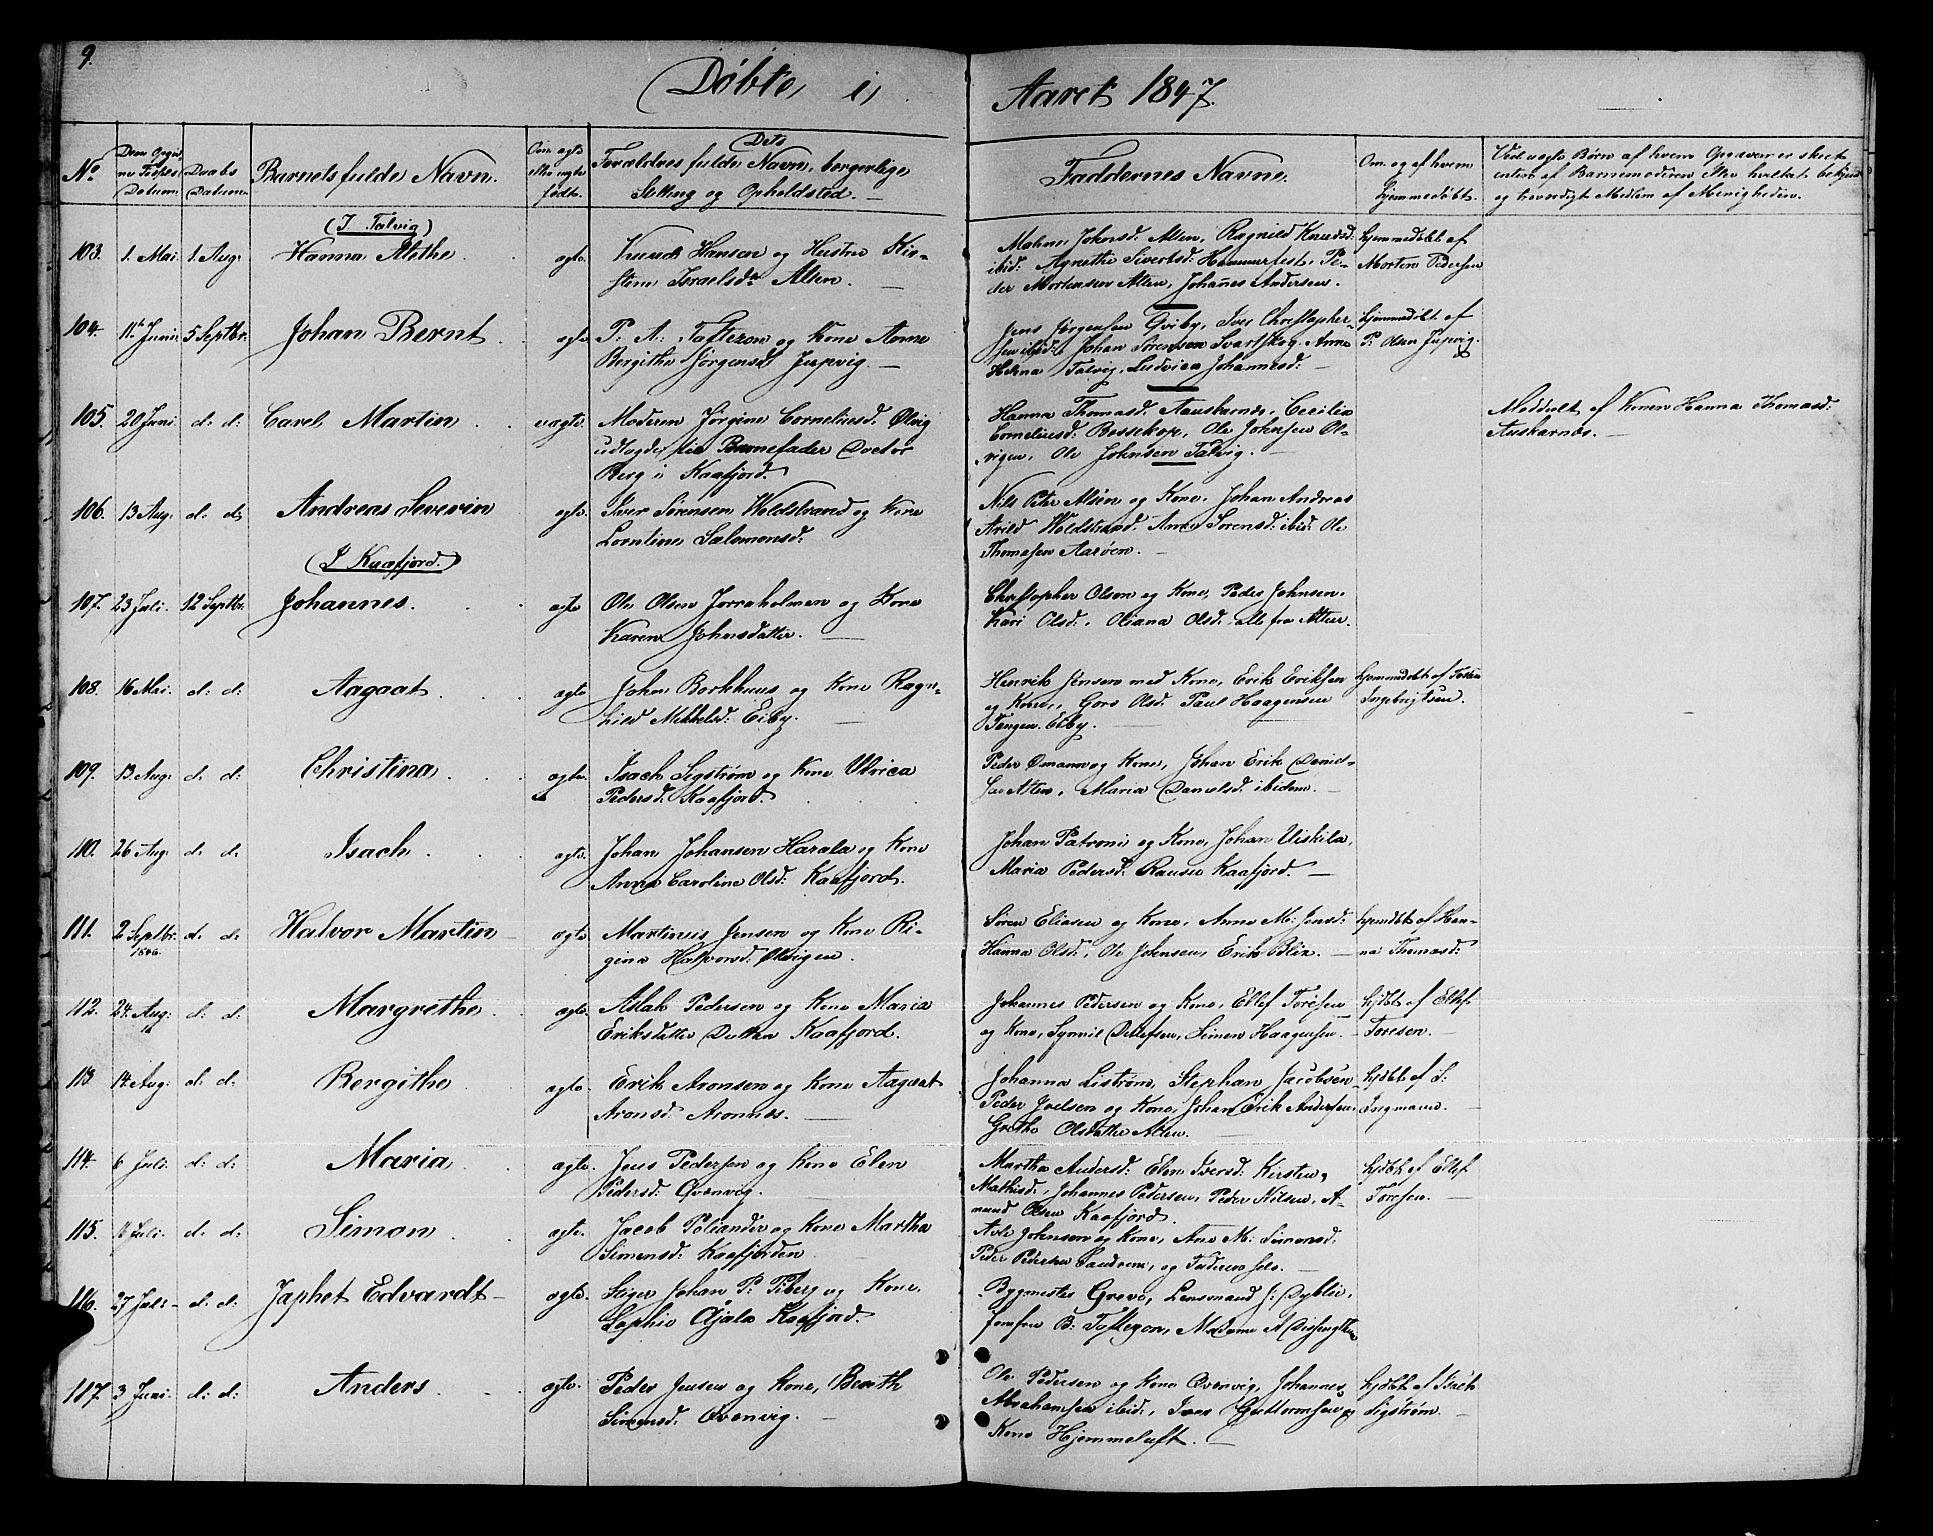 9.
Døbte i Aaret 1847.
No
Datum
Daabs Datum
Barnets fulde Navn.
Om ægte eller uægte født.
Dets Forældres fulde Navn, borgerlige
Stilling og Opholdsted.
Faddernes Navne.
Om og af hvem hjemmedøbt.
Ved uægte Børn af hvem Opgaven er skeet
enten af Barnemoderen eller
og troværdigt Medlem af Menigheden.
(I Talvig)
103. 1. Mai. 1. Aug: Hanna Alethe ægte Knud Hansen og Hustru Kir-
stine Israelsdr Alten.
Johnsd: Alten, Ragnild Knudsd:
ibid: Agnethe Sivertsd: Hammerfest. Pe-
der Mortensen Alten, Johannes Andersen.
hjemmedøbt af
Morten Pedersen
104. 11te Juni 5 Septbr. Johan Bernt ægte P. A: Taftezon og Kone Anne
Bergithe Jørgensd Jupvig.
Jens Jørgensen Qviby, Iver Christopher-
sen ibid: Johan Sørensen Svartskog. Anne
Helena Talvig, Ludvica Johannesd:
hjemmedøbt af
P: Olsen Jupvig.
105. 20 Juni d: d: Carel Martin uægte Moderen Jørgine Corneliusd. Ølvig
udlagde til Barnefader Doctor
Berg i Kaafjord.
Hanna Thomasd. Auskarnæs, Cecilia
Corneliusd: Bossekop, Ole Johnsen Øl-
vigen, Ole Johnsen Talvig.
Meddelt af Konen Hanna Thomasd:
Auskarnæs.
106. 13 Aug. d: d: Andreas Severin ægte Iver Sørensen Woldstrand og Kone
Lorntine Salomonsd:
Nils Peter Alsén og Kone, Johan Andreas
Arild Woldstrand. Anne Sørensd: ibid: Ole
Thomesen Aarøen.
(I Kaafjord.)
107. 23 Juli. 12 Septbr. Johannes. ægte Ole Olsen Jorraholmen og Kone
Karen Johnsdatter.
Christopher Olsen og Kone, Peder Johnsen.
Kari Olsd:, Oliana Olsd: alle fra Alten.
108. 16 Mai. d: d: Aagaat ægte John Borkhuus og Kone Ragn-
hild Mikkelsd: Eiby.
Henrik Jensen med Kone, Erik Eriksen
og Kone, Goro Olsd: Paul Haagensen
Tangen. Eiby.
hjemmedøbt af
Ingebrigtsen.
109. 13 Aug: d: d: Christina ægte. Isach Sigstrøm og Kone Ulrica
Pedersd: Kaafjord.
Peder Omann og Kone, Johan Erik Daniel-
sen Alten, Maria Danielsd. ibidem.
110. 26 Aug: d: d: Isach ægte. Johan Johansen Harala og Kone
Anna Caroline Olsd: Kaafjord.
Johan Patroni og Kone, Johan Uiskila,
Maria Pedersd: Kaafjord.
111. 2 Septbr. 1846. d: d: Halvor Martin ægte. Martinus Jensen og Kone Ri-
gina Halvorsd: Ølvigen.
Søren Eliasen og Kone, Anne M: Jensd:
Hanna Olsd:, Ole Johnsen, Erik Blix.
hjmdbt af Han-
na Thomasd:
112. 24 Aug: d: d: Margrethe ægte Aslak Pedersen og Kone Maria
Eriksdatter Kaafjord.
Johannes Pedersen og Kone, Ellef Toresen
og Kone, Detlefsen, Simen Haagensen.
hjdbt af Ellef
Toresen.
113 14 Aug: d: d: Bergithe ægte. Erik Aronsen og Kone Aagaat
Aronsd. Aronnes.
Johanna Listrøm, Stephan Jacobsen
Peder Joelsen og Kone, Johan Erik Andersen
Grethe Olsdatter Alten.
hjdbt af S:
Ingmann.
114. 6 Juli. d: d: Maria ægte. Jens Pedersen og Kone Elen
Pedersd: Qvenvig.
Martha Andersd: Elen Iversd: Kirsten
Mathisd:, Johannes Pedersen, Peder Nilsen, A-
mund Olsen Kaafjord.
hjdbt af Ellef
Toresen.
115. Juli. d: d: Simon ægte. Jacob Poliander og Kone Martha
Simensd: Kaafjorden
Johnsen og Kone, Ane M: Simonsd.
Peder Pedersen og Faderen selv.
116. 27 Juli d: d: Japhet Edvardt ægte Johan P: Fiberg og Kone
Sophie Ojala Kaafjord.
Bygmester Greve, Lensmand J: Dyblie,
Jomfru B: Taftezon, Madame A
117. 3 Juni. d: d: Anders ægte. Peder Jensen og Kone, Bereth
Simensd: Qvenvig.
Ole Pedersen og Kone Qvenvig, Johannes
Abrahamsen ibid:, Iver Guttormsen og
Kone Hjemmeluft.
hjdbt af Isach
Sigstrøm.